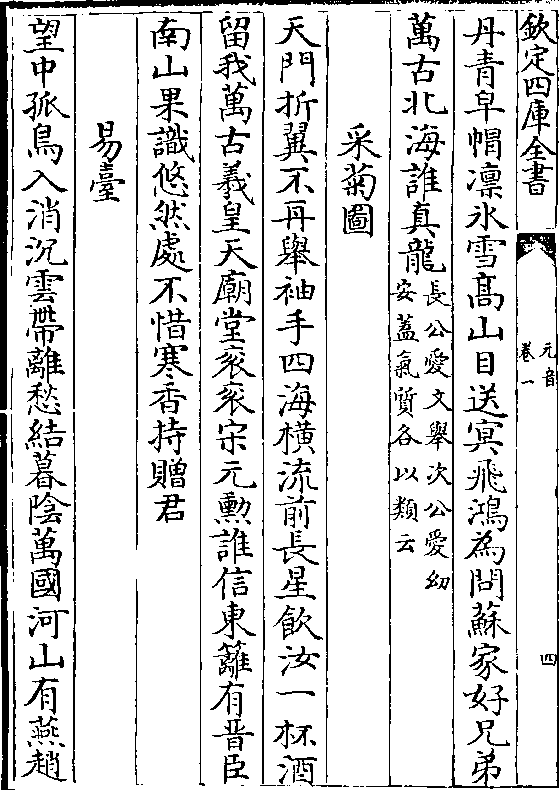 欽定四庫全書
元音
卷一
四
丹青皁帽凛氷雪髙山目送冥飛鴻為問蘇家好兄弟
萬古北海誰真龍長公愛文舉次公愛幼
安蓋氣質各以類云
采菊圖
天門折翼不再舉袖手四海橫流前長星飲汝一杯酒
留我萬古羲皇天廟堂衮衮宋元勲誰信東籬有晉臣
南山果識悠然處不惜寒香持贈君
易臺
望中孤鳥入消沉雲帶離愁結暮隂萬國河山有燕趙